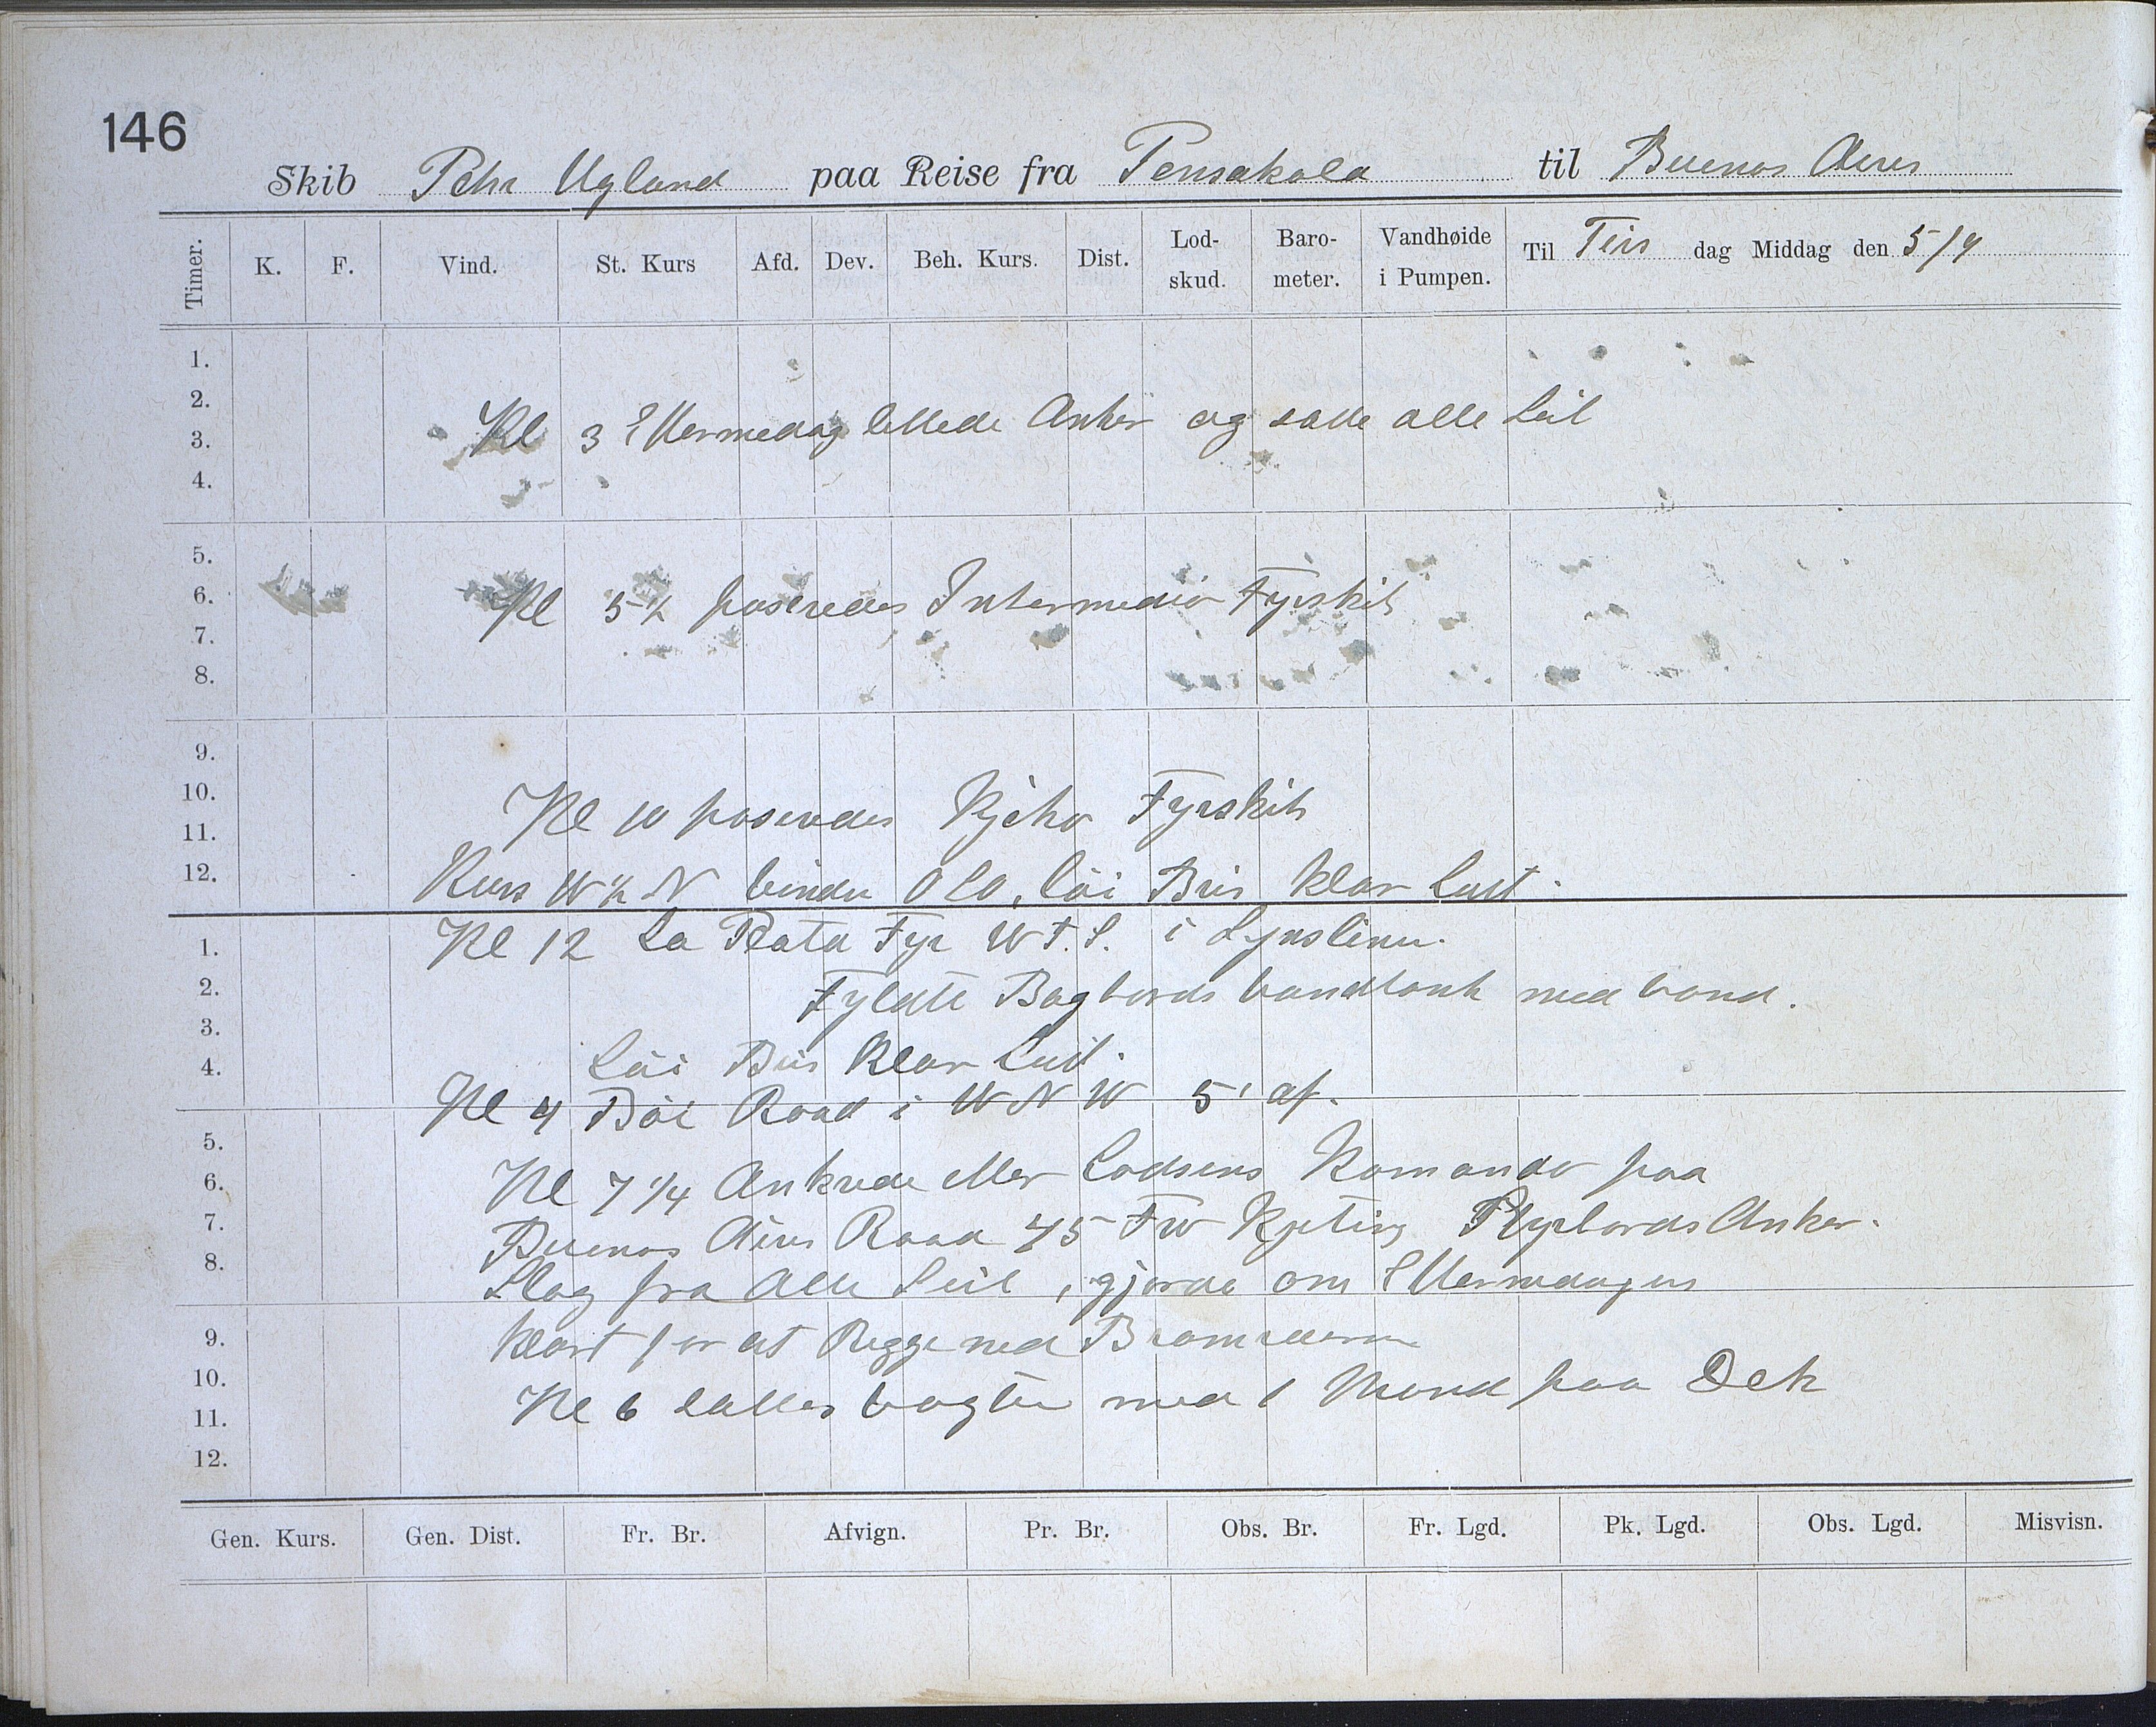 146
Skib Peter Ugland paa Reise fra Pensakola til Buenos Aires
Timer. K. F. Vind. St. Kurs Afd. Dev. Beh. Kurs. Dist. Lod-skud. Baro-meter. Vandhøide i Pumpen. Til Tirs dag Middag den 5/9
1.
2.
3. Kl 3 Ettermedag lettede Anker og satte alle Seil
4.
5.
6. Kl 5½ paseredes Intermedio Fyrskib
7.
8.
9.
10. Kl 10 paseredes Fyrskib
11.
12. Kurs W½N vinden Löi Bris klar Luft.
1. Kl 12 La Plata Fyr i Synslinu.
2. Fyldte Bagbords vandtank med vand.
3.
4. Löi Bris Klar Luft.
Kl 4 Böi Road i WNW 5' af.
5.
6. Kl 7¼ Ankrede etter Lodsens Komando paa
7. Buenos Aires Road 45 Fv Kjeting Styrbords Anker.
8. Slog fra Alle Seil, gjorde om Ettermedagen
9. klart for at Rigge ned
10. Kl 6 sattes vagten med 1 Mand paa Dek
11.
12.
Gen. Kurs. Gen. Dist. Fr. Br. Afvign. Pr. Br. Obs. Br. Fr. Lgd. Pk. Lgd. Obs. Lgd. Misvisn.